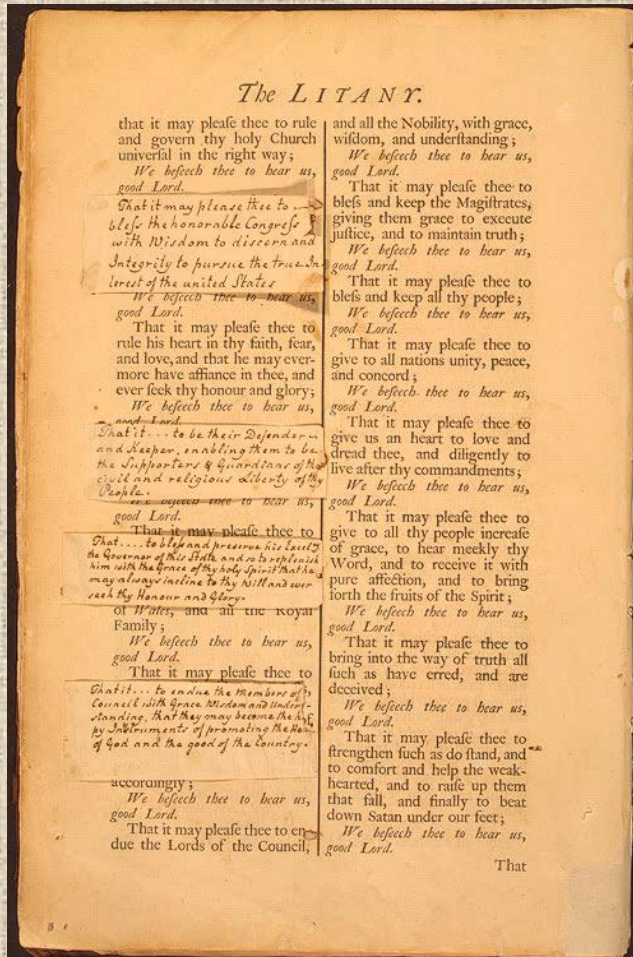 The LITANY.
that it may pleaſe thee to rule
and govern thy holy Church
univerſal in the right way;
We beſeech thee to hear us,
good Lord.
That it may please thee to
bleſs the honorable Congreſs
with Wisdom to discern and
Integrity to pursue the true In
terest of the united States
We beſeech thee to hear us,
good Lord.
That it may pleaſe thee to
rule his heart in thy faith, fear,
and love, and that he may ever-
more have affiance in thee, and
ever ſeek thy honour and glory;
We beſeech thee to hear us,
good Lord.
That it . . . to be their Defender
and Keeper, enabling them to be
the Supporters & Guardians of the
civil and religious Liberty of thy
People.
We beſeech thee to hear us,
good Lord.
That it may pleaſe thee to
That . . . . to bleſs and preserve his Excelly
the Governor of this State and so to replenish
him with the Grace of thy holy Spirit that he
may always incline to thy Will and ever
seek thy Honour and Glory.
of Wales, and all the Royal
Family;
We beſeech thee to hear us,
good Lord.
That it may pleaſe thee to
That it . . . to endue the Members of
Council with Grace Wisdom and Under-
standing, that they may become the hap
py Instruments of promoting the Hon
of God and the good of the Country.
accordingly;
We beſeech thee to hear us,
good Lord.
That it may pleaſe thee to en-
due the Lords of the Council,
and all the Nobility, with grace,
wiſdom, and underſtanding;
We beſeech thee to hear us,
good Lord.
That it may pleaſe thee to
bleſs and keep the Magiſtrates,
giving them grace to execute
juſtice, and to maintain truth;
We beſeech thee to hear us,
good Lord.
That it may pleaſe thee to
bleſs and keep all thy people;
We beſeech thee to hear us,
good Lord.
That it may pleaſe thee to
give to all nations unity, peace,
and concord;
We beſeech thee to hear us,
good Lord.
That it may pleaſe thee to
give us an heart to love and
dread thee, and diligently to
live after thy commandments;
We beſeech thee to hear us,
good Lord.
That it may pleaſe thee to
give to all thy people increaſe
of grace, to hear meekly thy
Word, and to receive it with
pure affection, and to bring
forth the fruits of the Spirit;
We beſeech thee to hear us,
good Lord.
That it may pleaſe thee to
bring into the way of truth all
ſuch as have erred, and are
deceived;
We beſeech thee to hear us,
good Lord.
That it may pleaſe thee to
ſtrengthen ſuch as do ſtand, and
to comfort and help the weak-
hearted, and to raiſe up them
that fall, and finally to beat
down Satan under our feet;
We beſeech thee to hear us,
good Lord.
That